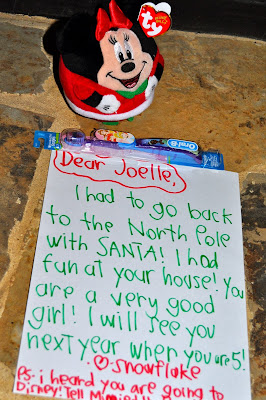 ty
Oral-B
Dear Joelle,
I had to go back
to the North Pole
with SANTA! I had
fun at your house! You
are a very good
girl! I will see you
next year when you are 5!
♡. snowflake
PS. i heard you are going to
Disney! Tell